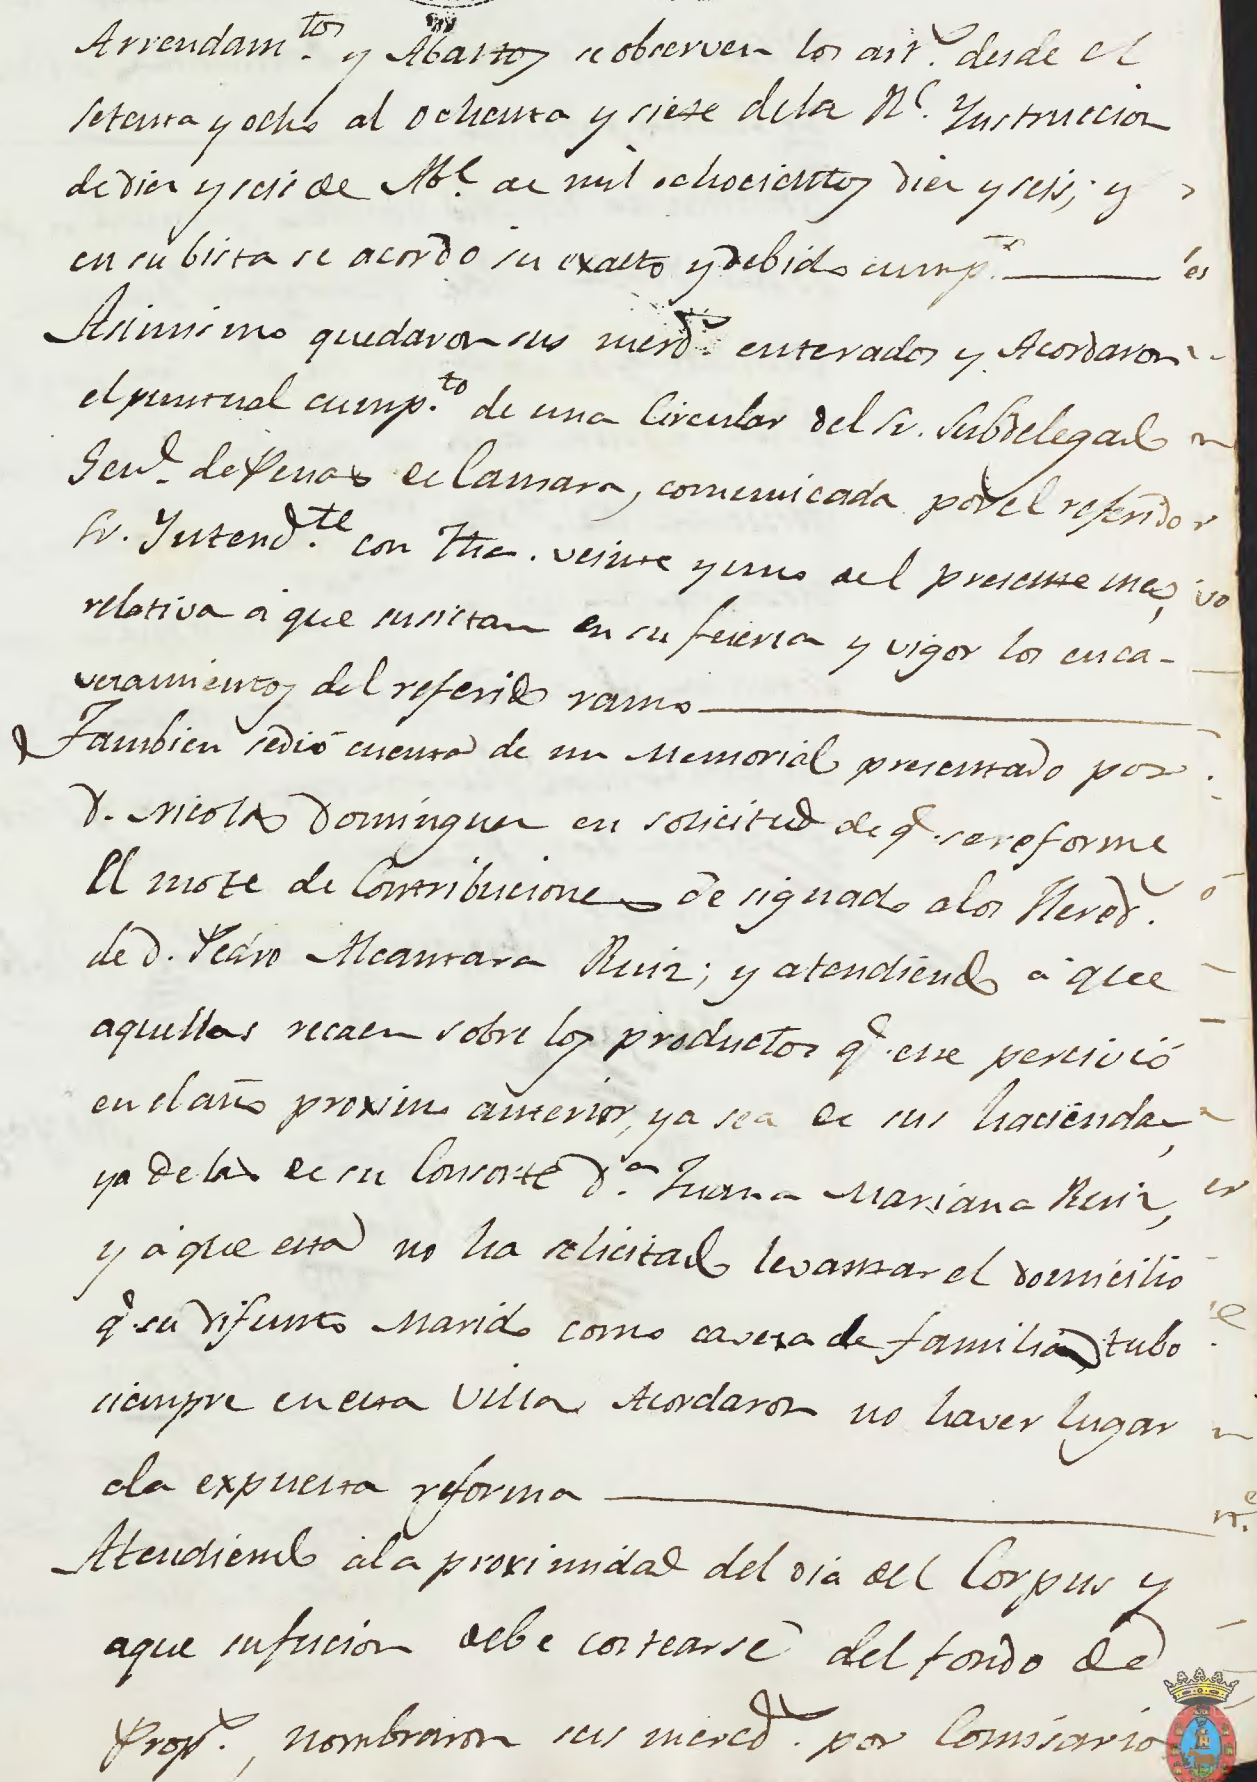 Arrendam.tos y Abastos se observen los art.s desde el
setenta y ocho al ochenta y siete dela Rl. Ynstruccion
de diez y seis de Abl. de mil ochocientos diez y seis; y
en su bista se acordó su exacto y debido cump.to
Asimismo quedaron sus merds. enterados y Acordaron
el puntual cump.to de una Circular del Sr. Subdelegado
Genl. de Penas de Camara, comunicada por el referido
Sr. Yntend.te con fha. veinte y uno del presente mes,
relativa á que susistan en su fuerza y vigor los enca-
vezamientos del referido ramo
Tambien sedió cuenta de un Memorial presentado por
D. Nicolas Dominguez en solicitud de q.e se reforme
El mote de Contribuciones designado alos Hered.s
de D. Pedro Alcantara Ruiz; y atendiendo á que
aquellas recaen sobre los productos q.e ese percivió
en el año proximo anterior, ya sea de sus haciendas,
ya de las de su Consorte D.a Juana Mariana Ruiz,
y á que esta no ha solicitado levantar el domicilio
q.e su difunto Marido como caveza de familia, tubo
siempre en esta Villa Acordaron no haver lugar
ala expuesta reforma
Atendiendo ala proximidad del dia del Corpus y
aque su fucion debe costearse del fondo de
Prop.s, nombraron sus merced.s por Comisario